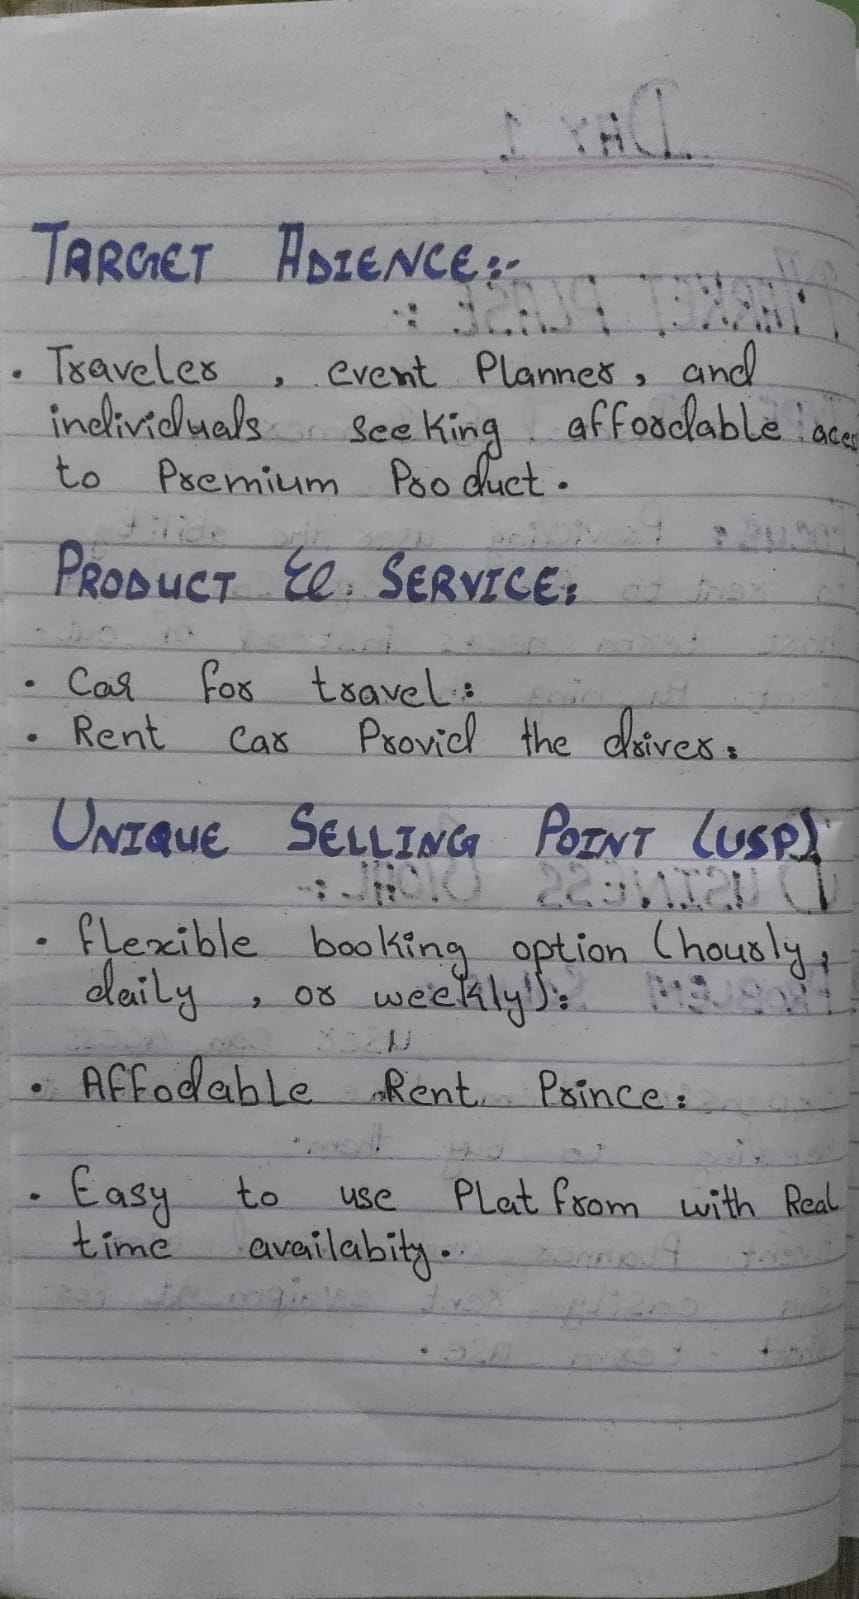 TARGET ADIENCE:-
• Traveler , event Planner, and
individuals seeking affordable aces
to Premium Product.
PRODUCT & SERVICE:
• Car for travel:
• Rent car Provid the driver:
UNIQUE SELLING POINT (USP)
• flexible booking option (hourly,
daily , or weekly):
• Affodable Rent Prince:
• Easy to use PLat from with Real
time availabity.